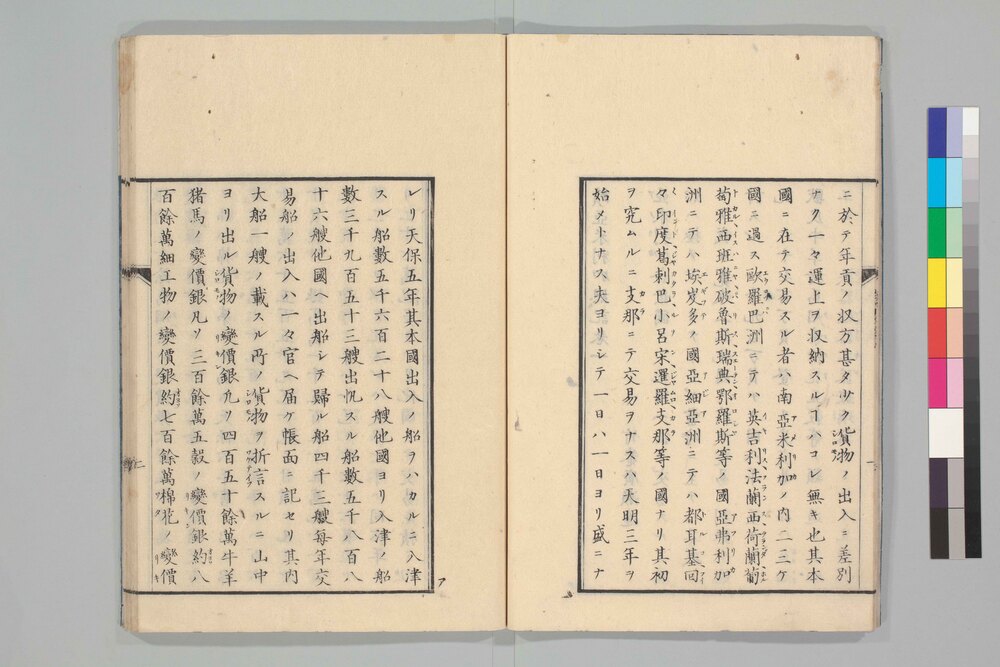 ニ於テ年貢ノ收方甚タ少ク貨物ノ出入ニ差別
ナク一々運上ヲ収納スルヿハコレ無キ也其本
國ニ在テ交易スル者ハ南亞米利加ノ内二三ケ
國ニ過ス歐羅巴洲ニテハ英吉利法蘭西荷蘭葡
萄雅西班雅破魯斯瑞典鄂羅斯等ノ國亞弗利加
洲ニテハ埃岌多ノ國亞細亞洲ニテハ都耳基回
々印度葛剌巴小呂宋暹羅支那等ノ國ナリ其初
ヲ究ムルニ支那ニテ交易ヲナスハ天明三年ヲ
始メトナス夫ヨリシテ一日ハ一日ヨリ盛ニナ
レリ天保五年其本國出入ノ船ヲハカルニ入津
スル船數五千六百二十八艘他國ヨリ入津ノ船
數三千九百五十三艘出帆スル船數五千八百八
十六艘他國ヘ出船シテ歸ル船四千三艘每年交
易船ノ出入ハ一々官ヘ届ケ帳面ニ記セリ其内
大船一艘ノ載スル所ノ貨物ヲ折言スルニ山中
ヨリ出ル貨物ノ變價銀九ソ四百五十餘萬牛羊
猪馬ノ變價銀凡ソ三百餘萬五穀ノ變價銀約八
百餘萬細工物ノ變價銀約七百餘萬棉花ノ變價